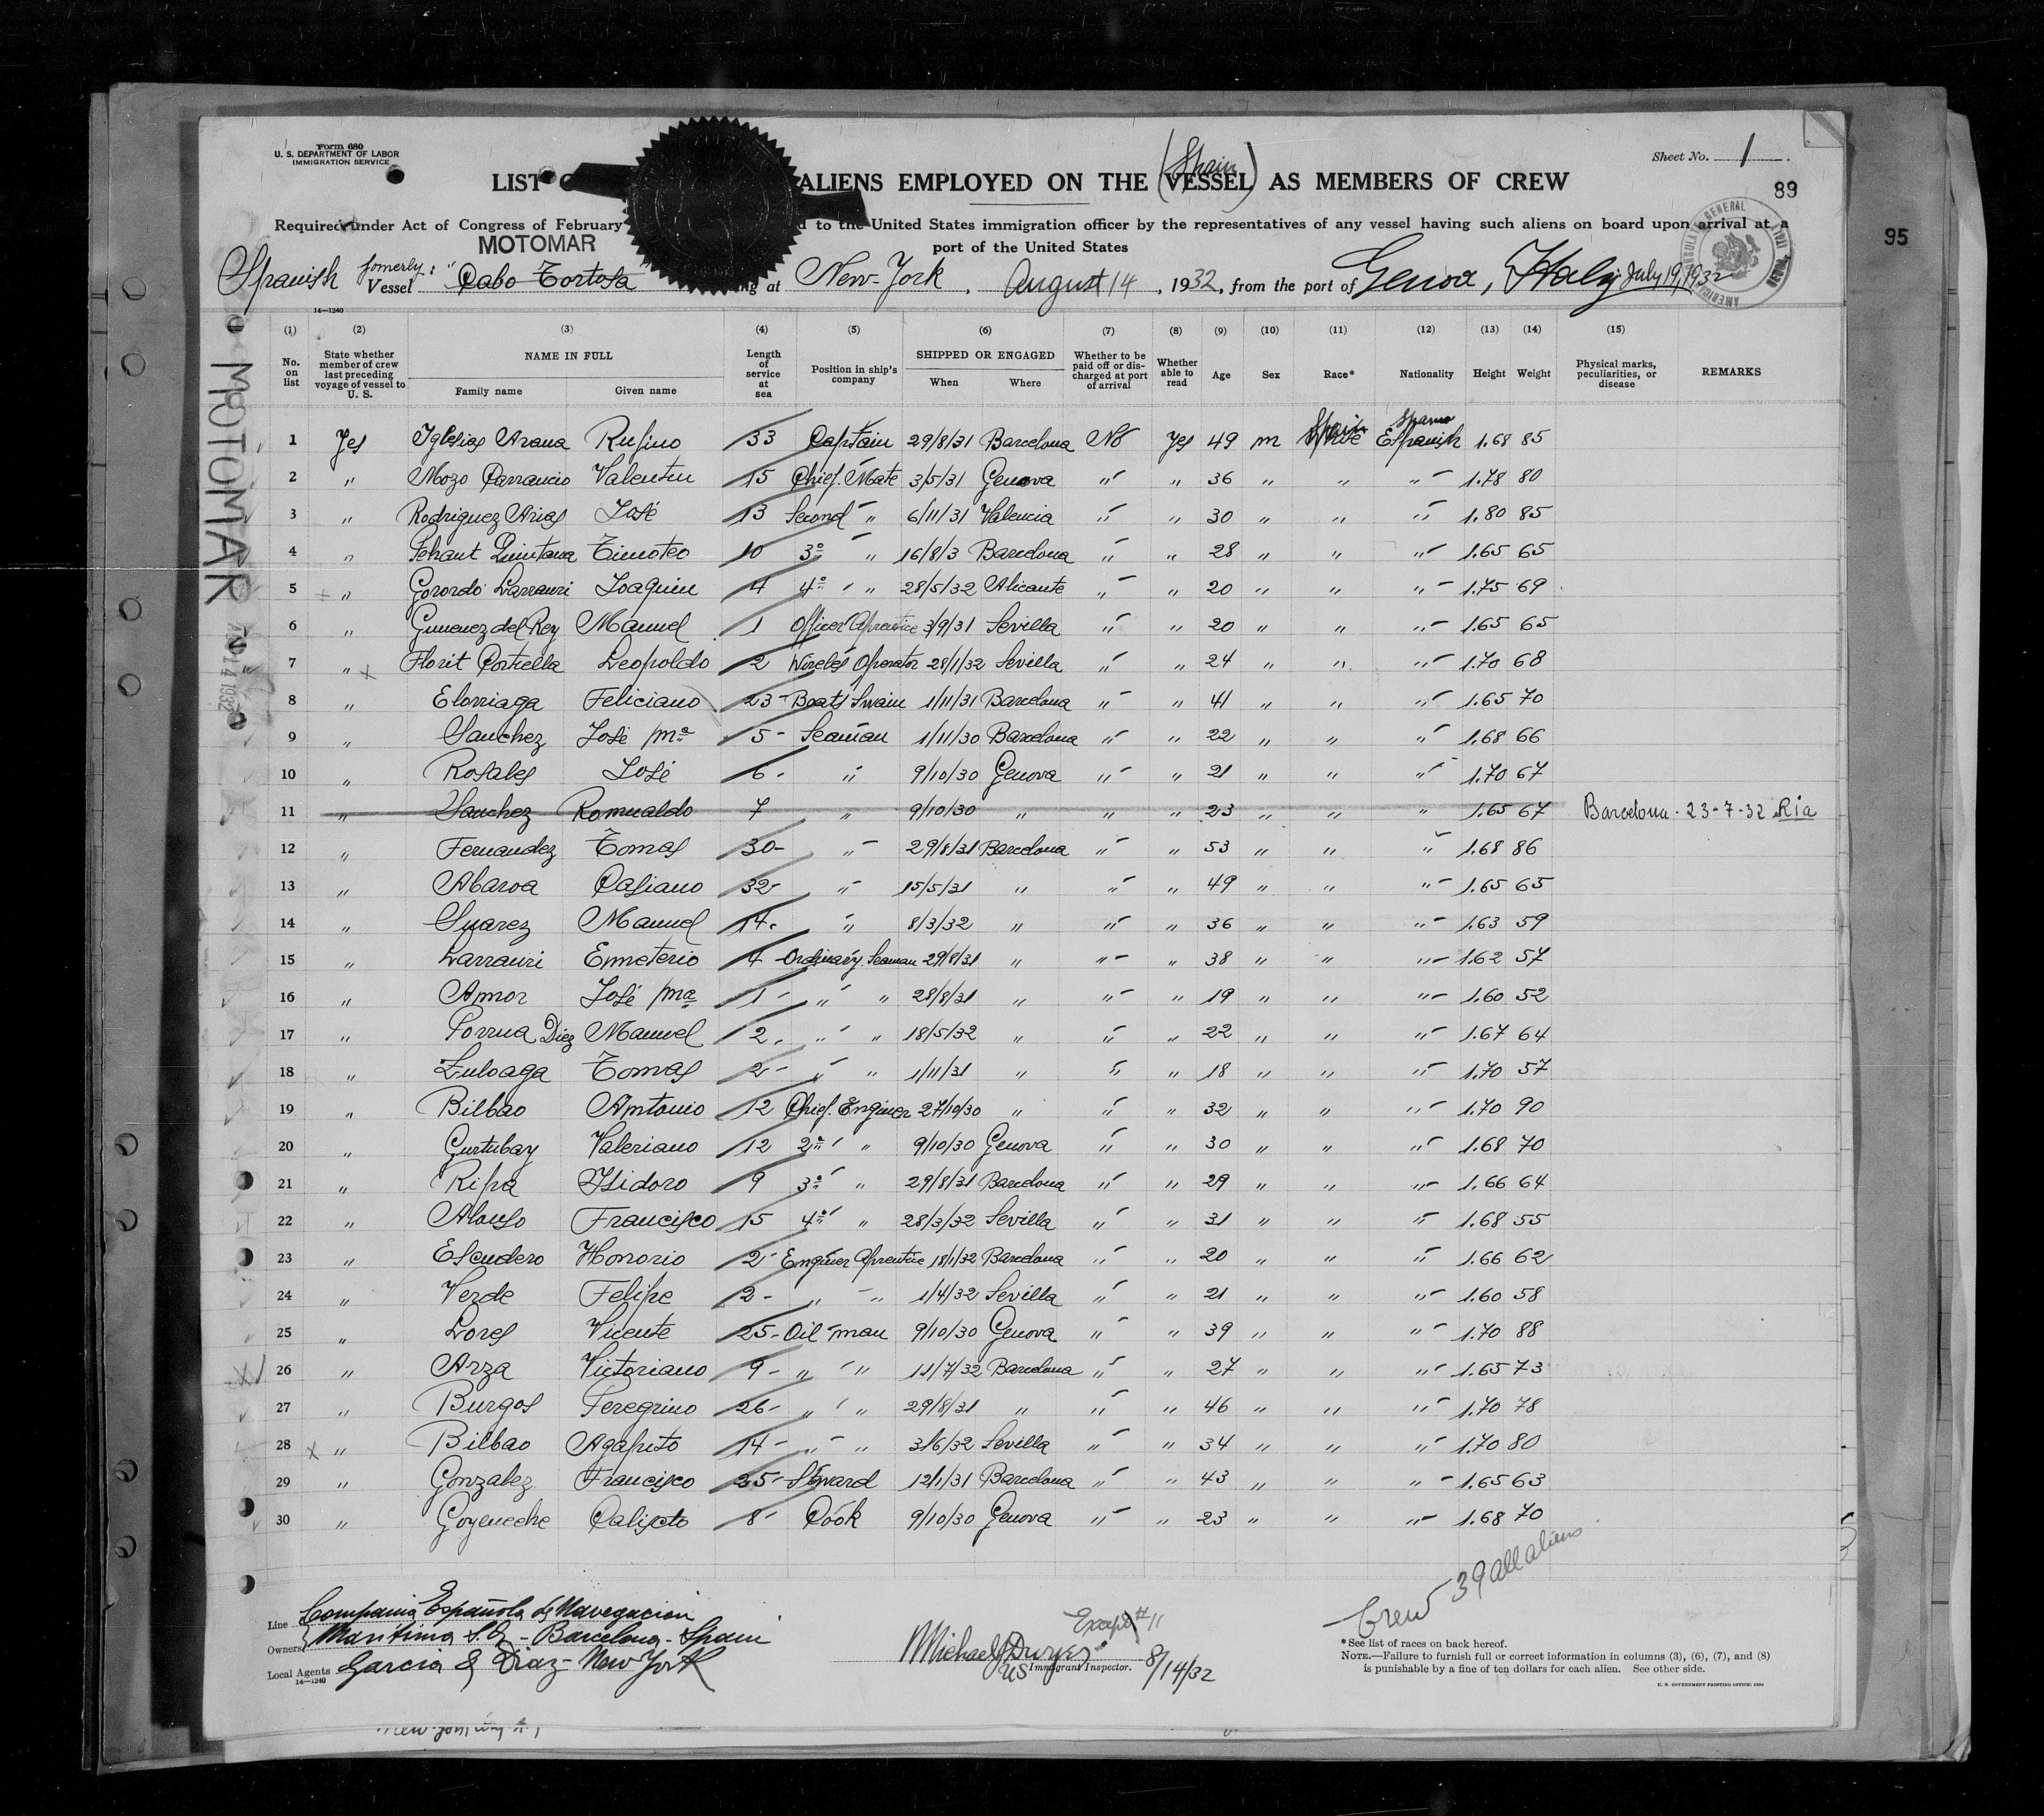 Form 680
U. S. DEPARTMENT OF LABOR
IMMIGRATION SERVICE
Sheet No. 1
(Spain)
LIST ALIENS EMPLOYED ON THE VESSEL AS MEMBERS OF CREW
89
95
Required under Act of Congress of February to the United States immigration officer by the representatives of any vessel having such aliens on board upon arrival at a
port of the United States
MOTOMAR
Spanish formerly: Vessel "Cabo Tortosa" at New-York, August 14, 1932, from the port of Genova, Italy July 19, 1932
AMERICAN CONSULATE GENERAL
MOTOMAR
14 1932
14—1240
(1) (2) (3) (4) (5) (6) (7) (8) (9) (10) (11) (12) (13) (14) (15)
No. on list
State whether member of crew last preceding voyage of vessel to U. S.
NAME IN FULL
Family name Given name
Length of service at sea
Position in ship's company
SHIPPED OR ENGAGED
When Where
Whether to be paid off or discharged at port of arrival
Whether able to read
Age Sex Race* Nationality Height Weight
Physical marks, peculiarities, or disease
REMARKS
Spain Spain
1 Yes Iglesias Arana Rufino 33 Captain 29/8/31 Barcelona No Yes 49 m White Espanish 1.68 85
2 " Mozo Carrancio Valentin 15 Chief Mate 3/5/31 Genova " " 36 " " " 1.78 80
3 " Rodriguez Arias José 13 Second " 6/11/31 Valencia " " 30 " " " 1.80 85
4 " Quintana Timoteo 10 3º " 16/8/3 Barcelona " " 28 " " " 1.65 65
5 " Gorordo Larrauri Joaquin 4 4º " 28/5/32 Alicante " " 20 " " " 1.75 69
6 " Gimenez del Rey Manuel 1 Officer Aprentice 3/9/31 Sevilla " " 20 " " " 1.65 65
7 " Florit Cortiella Leopoldo 2 Wireles Operator 28/1/32 Sevilla " " 24 " " " 1.70 68
8 " Elorriaga Feliciano 23 Boats Swain 1/11/31 Barcelona " " 41 " " " 1.65 70
9 " Sanchez José Mª 5 Seaman 1/11/30 Barcelona " " 22 " " " 1.68 66
10 " Rosales José 6 " 9/10/30 Genova " " 21 " " " 1.70 67
11 " Sanchez Romualdo 7 " 9/10/30 " " " 23 " " " 1.65 67 Barcelona - 23-7-32 Ria
12 " Fernandez Tomas 30 " 29/8/31 Barcelona " " 53 " " " 1.68 86
13 " Abaroa Casiano 32 " 15/5/31 " " " 49 " " " 1.65 65
14 " Suarez Manuel 14 " 8/3/32 " " " 36 " " " 1.63 59
15 " Larrauri Emeterio 4 Ordinary Seaman 29/8/31 " " " 38 " " " 1.62 57
16 " Amor José Mª 1 " " 28/8/31 " " " 19 " " " 1.60 52
17 " Porrua Diez Manuel 2 " " 18/5/32 " " " 22 " " " 1.67 64
18 " Zuloaga Tomas 2 " " 1/11/31 " " " 18 " " " 1.70 57
19 " Bilbao Antonio 12 Chief Enginer 27/10/30 " " " 32 " " " 1.70 90
20 " Gurtubay Valeriano 12 2º " 9/10/30 Genova " " 30 " " " 1.68 70
21 " Ripa Isidoro 9 3º " 29/8/31 Barcelona " " 29 " " " 1.66 64
22 " Alonso Francisco 15 4º " 28/3/32 Sevilla " " 31 " " " 1.68 55
23 " Escudero Honorio 2 Enginer Aprentice 18/1/32 Barcelona " " 20 " " " 1.66 62
24 " Verde Felipe 2 " " 1/4/32 Sevilla " " 21 " " " 1.60 58
25 " Lores Vicente 25 Oil-man 9/10/30 Genova " " 39 " " " 1.70 88
26 " Arza Victoriano 9 " " 11/7/32 Barcelona " " 27 " " " 1.65 73
27 " Burgos Peregrino 26 " " 29/8/31 " " " 46 " " " 1.70 78
28 " Bilbao Agapito 14 " " 3/6/32 Sevilla " " 34 " " " 1.70 80
29 " Gonzalez Francisco 25 Steward 12/1/31 Barcelona " " 43 " " " 1.65 63
30 " Goyeneche Calixto 8 Cook 9/10/30 Genova " " 23 " " " 1.68 70
Crew 39 all aliens
Line Compania Española de Navegacion
Owners Maritima S.A. - Barcelona - Spain
Local Agents Garcia & Diaz - New York
14—1240
Except #11
Michael J Dwyer
US Immigrant Inspector. 8/14/32
*See list of races on back hereof.
NOTE.—Failure to furnish full or correct information in columns (3), (6), (7), and (8)
is punishable by a fine of ten dollars for each alien. See other side.
U. S. GOVERNMENT PRINTING OFFICE: 1930